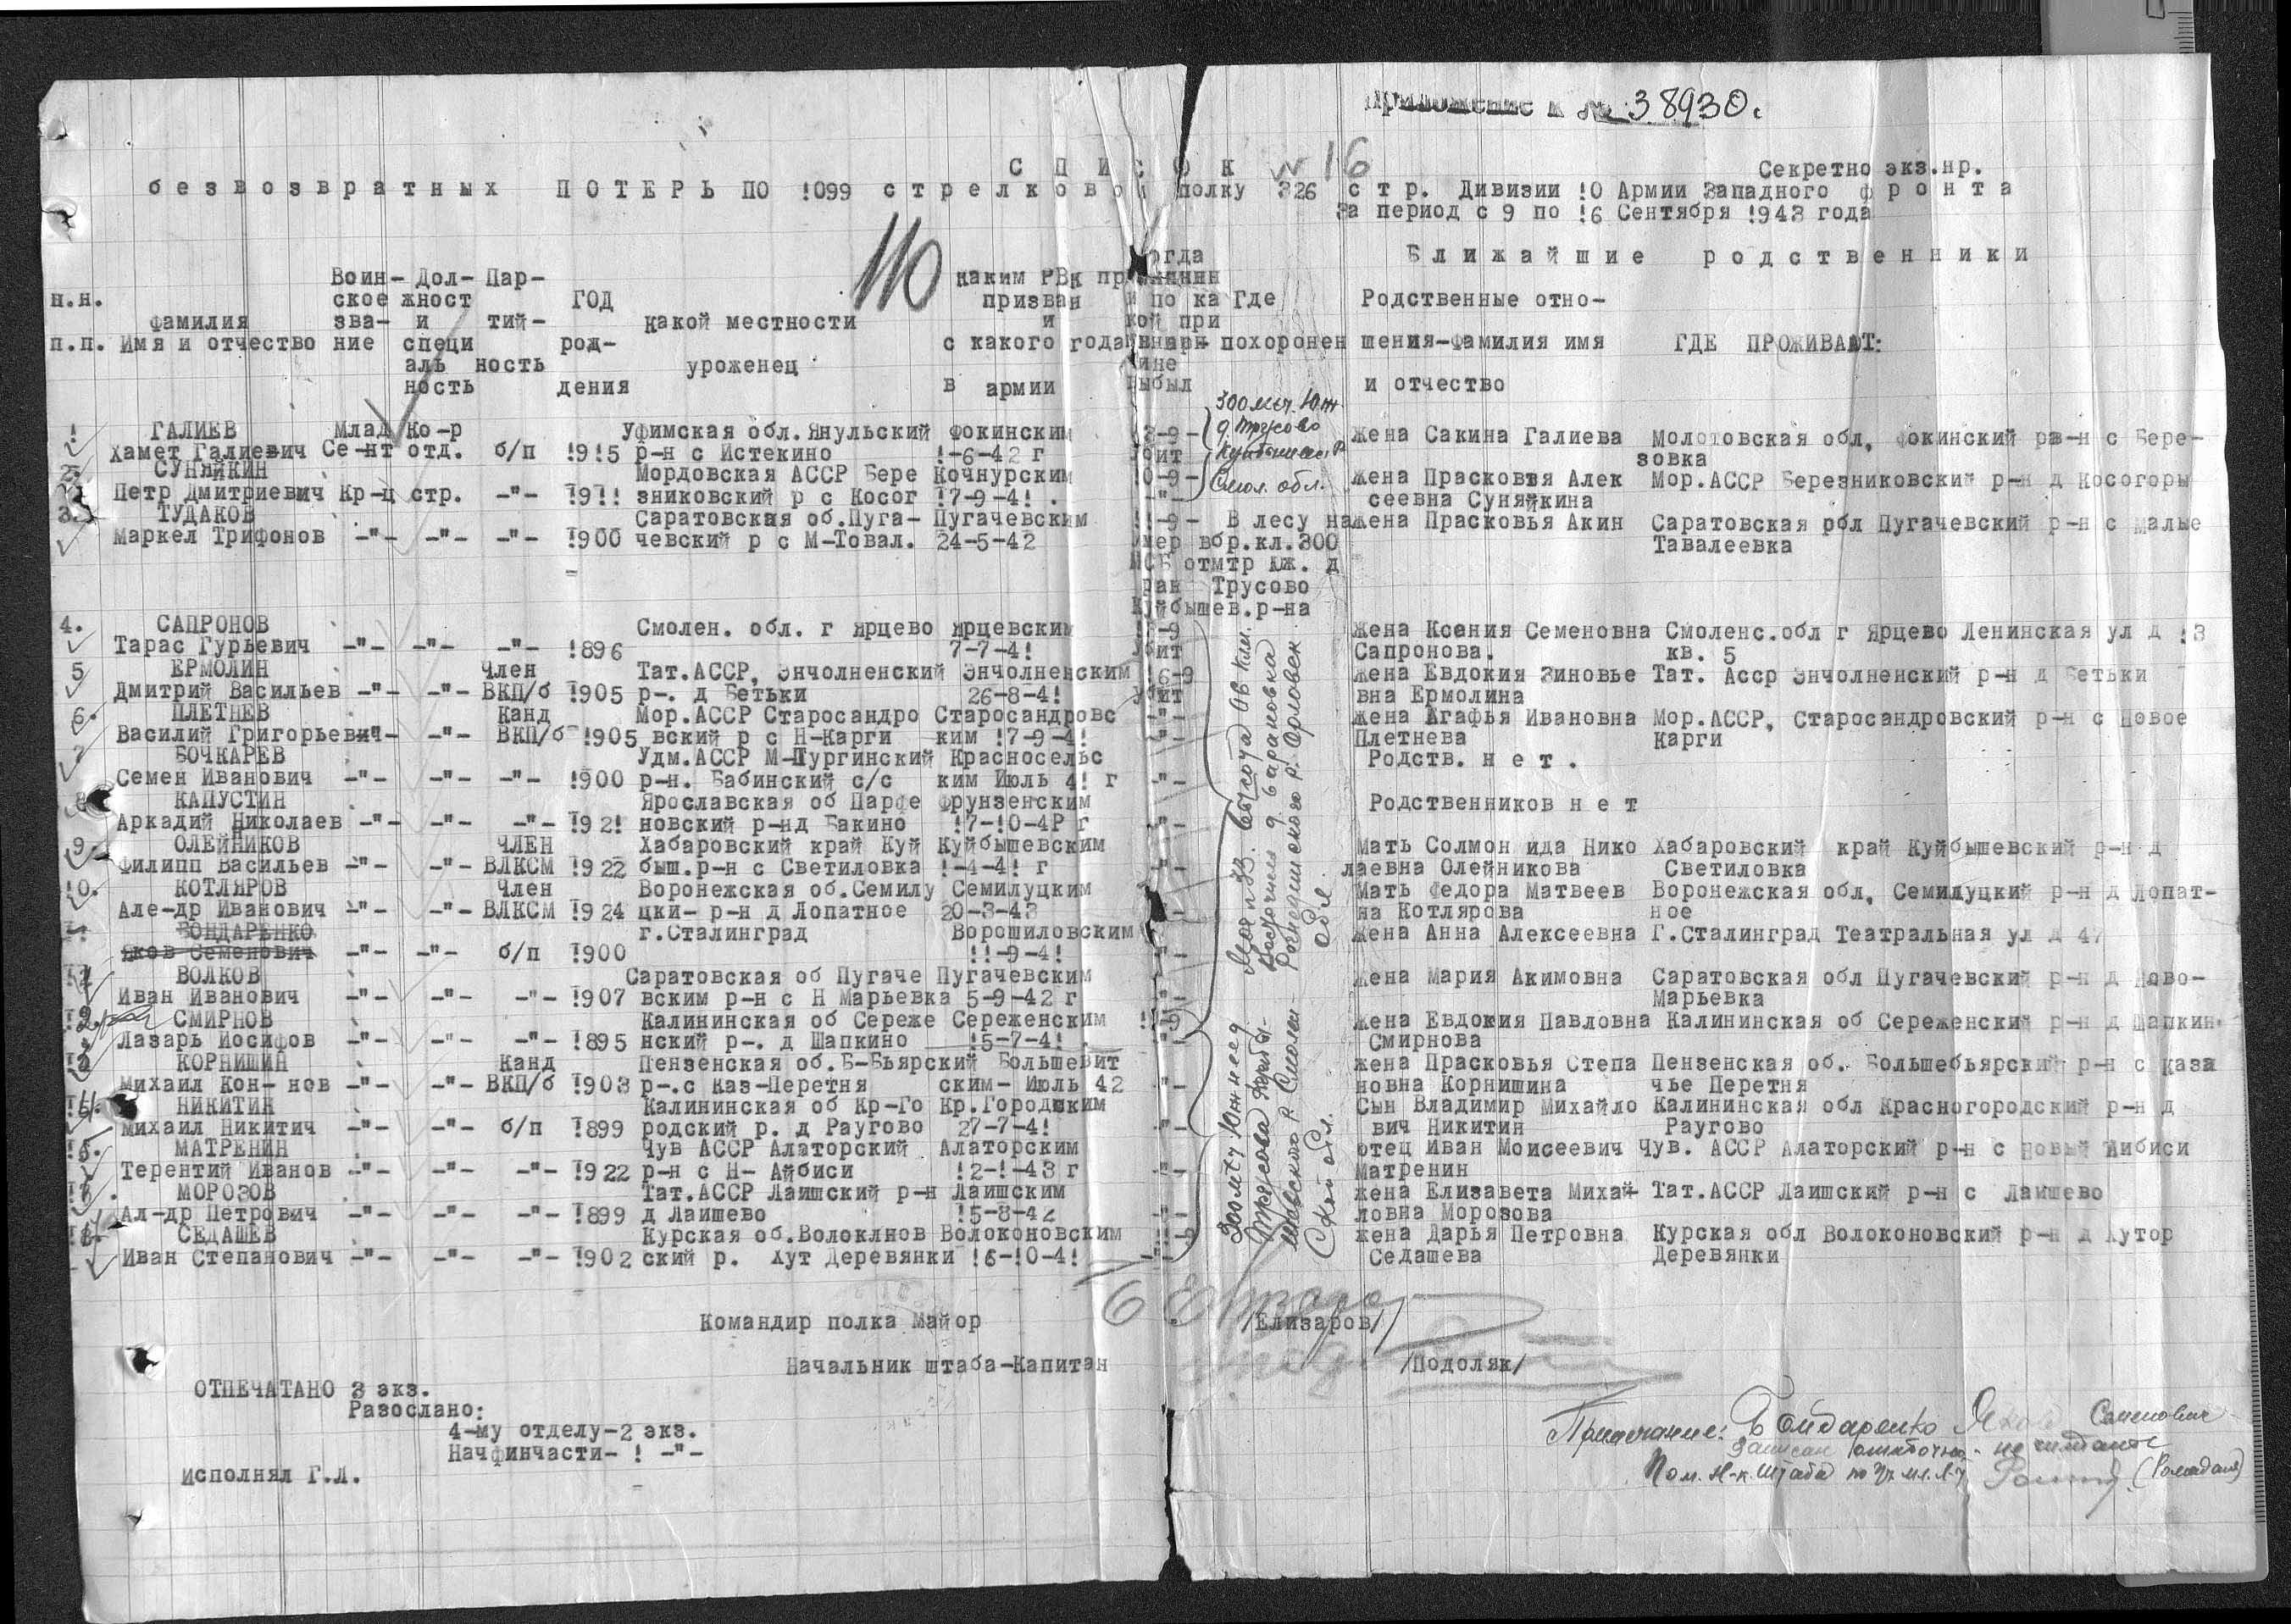 Приложение к № 38930с
С П И С О К № 16
Секретно экз.нр.
безвозвратных ПОТЕРЬ ПО !099 стрелковой полку 326 стр. Дивизии !0 Армии Западного фронта
За период с 9 по !6 Сентября !943 года
110
Ближайшие родственники
н.н. п.п.
Фамилия Имя и отчество
Воин- ское зва- ние
Дол- жност и специ аль ность
Пар- тий- ность
ГОД род- дения
какой местности уроженец
каким РВк призван и с какого года в армии
Где похоронен
Родственные отно- шения-Фамилия имя и отчество
ГДЕ ПРОЖИВАЮТ:
! ГАЛИЕВ Млад Ко-р Уфимская обл. Янульский Фокинским
Хамет Галиевич Се-нт отд. б/п !9!5 р-н с Истекино !-6-42 г
Жена Сакина Галиева Молотовская обл, Фокинский рв-н с Бере-
зовка
300 мет. Юж.
д Трусово
Куйбышев. Р
Смол. обл.
2. СУНЯЙКИН Мордовская АССР Бере Кочнурским !0-9-
Петр Дмитриевич Кр-ц стр. -"- !9!! зниковский р с Косог !7-9-4! . -"-
Жена Прасковья Алек Мор.АССР Березниковский р-н д Косогоры
сеевна Суняйкина
3. ТУДАКОВ Саратовская об.Пуга- Пугачевским !!-9- В лесу на
Маркел Трифонов -"- -"- -"- !900 чевский р с М-Товал. 24-5-42 Умер вбр.кл.300
МСБ отмтр Юж. д
ран Трусово
Куйбышев.р-на
Жена Прасковья Акин Саратовская рбл Пугачевский р-н с Малые
Тавалеевка
4. САПРОНОВ Смолен. обл. г Ярцево Ярцевским
Тарас Гурьевич -"- -"- -"- !896 7-7-4! Убит
Жена Ксения Семеновна Смоленс.обл г Ярцево Ленинская ул д !3
Сапронова. кв. 5
5 ЕРМОЛИН Член Тат.АССР, Энчолненский Энчолненским !6-9
Дмитрий Васильев -"- -"- ВКП/б !905 р-. д Бетьки 26-8-4! убит
Жена Евдокия Зиновье Тат. Асср Энчолненский р-н д Бетьки
вна Ермолина
6. ПЛЕТНЕВ Канд Мор.АССР Старосандро Старосандровс -"-
Василий Григорьевич- -"- ВКП/б !905 вский р с Н-Карги ким !7-9-4! -"-
Жена Агафья Ивановна Мор.АССР, Старосандровский р-н с Новое
Плетнева Карги
7 БОЧКАРЕВ Удм.АССР М-Пургинский Красносельс
Семен Иванович -"- -"- -"- !900 р-н. Бабинский с/с ким Июль 4! г -"-
Родств. нет.
8 КАПУСТИН Ярославская об Парфе Фрунзенским
Аркадий Николаев -"- -"- -"- !92! новский р-нд Бакино !7-!0-4Р г -"-
Родственников нет
9. ОЛЕЙНИКОВ ЧЛЕН Хабаровский край Куй Куйбышевским
Филипп Васильев -"- -"- ВЛКСМ !922 быш.р-н с Светиловка !-4-4! г -"-
Мать Солмон ида Нико Хабаровский край Куйбышевский р-н д
лаевна Олейникова Светиловка
!0. КОТЛЯРОВ Член Воронежская об.Семилу Семилуцким
Але-др Иванович -"- -"- ВЛКСМ !924 цки- р-н д Лопатное 20-3-43
Мать Федора Матвеев Воронежская обл, Семилуцкий р-н д Лопат-
на Котлярова ное
БОНДАРЕНКО г.Сталинград Ворошиловским
Яков Семенович -"- -"- б/п !900 !!-9-4! -"-
Жена Анна Алексеевна Г.Сталинград Театральная ул д 47
ВОЛКОВ Саратовская об Пугаче Пугачевским
Иван Иванович -"- -"- -"- !907 вским р-н с Н Марьевка 5-9-42 г -"-
Жена Мария Акимовна Саратовская обл Пугачевский р-н д Ново-
Марьевка
!2. СМИРНОВ Калининская об Сереже Сереженским
Лазарь Иосифов -"- -"- -"- !895 нский р-. д Шапкино !5-7-4! . -"-
Жена Евдокия Павловна Калининская об Сереженский р-н д Шапкин.
Смирнова
!3 КОРНИШИН Канд Пензенская об.Б-Бьярский Большевит
Михаил Кон- нов -"- -"- ВКП/б !903 р-.с Каз-Перетня ским- Июль 42 -"-
Жена Прасковья Степа Пензенская об. Большебьярский р-н с Каза
новна Корнишина чье Перетня
!4. НИКИТИН Калининская об Кр-Го Кр.Городжким
Михаил Никитич -"- -"- б/п !899 родский р. д Раугово 27-7-4! -"-
Сын Владимир Михайло Калининская обл Красногородский р-н д
вич Никитин Раугово
!5. МАТРЕНИН Чув АССР Алаторский Алаторским
Терентий Иванов -"- -"- -"- !922 р-н с Н- Айбиси !2-!-43 г -"-
отец Иван Моисеевич Чув. АССР Алаторский р-н с Новый Айбиси
Матренин
МОРОЗОВ Тат.АССР Лаишский р-н Лаишским
Ал-др Петрович -"- -"- -"- !899 д Лаишево !5-8-42 -"-
Жена Елизавета Михай- Тат.АССР Лаишский р-н с Лаишево
ловна Морозова
СЕДАШЕВ Курская об.Волоклнов Волоконовским
Иван Степанович -"- -"- -"- !902 ский р. Хут Деревянки !6-!0-4! -"-
Жена Дарья Петровна Курская обл Волоконовский р-н д Хутор
Седашева Деревянки
Командир полка Майор /Елизаров/
Начальник штаба-Капитан /Подоляк/
ОТПЕЧАТАНО 3 экз.
Разослано:
4-му отделу-2 экз.
Начфинчасти- ! -"-
Исполнял Г.Л.
Примечание: Бондаренко Яков Семенович
записан ошибочно - не считать
Пом. Н-к. Штаба по